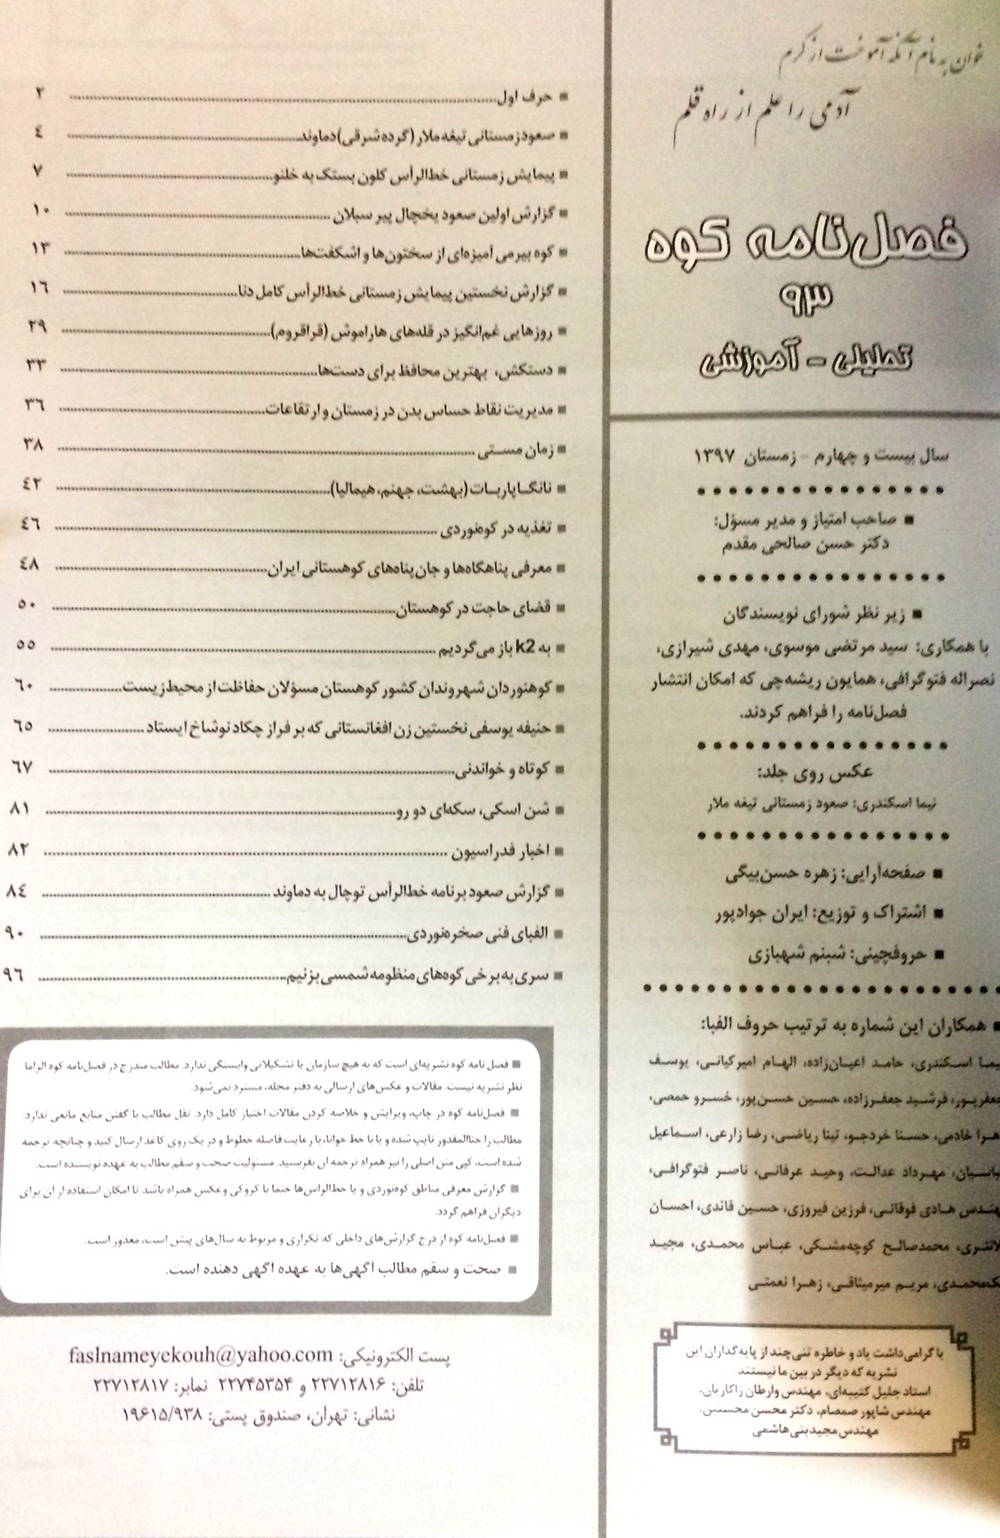 خوان به نام آنکه آموخت از کرم
آدمی را علم از راه قلم
فصل‌نامه کوه
۹۳
تحلیلی - آموزشی
سال بیست و چهارم - زمستان ۱۳۹۷
■ صاحب امتیاز و مدیر مسؤل:
دکتر حسن صالحی مقدم
■ زیر نظر شورای نویسندگان
با همکاری: سید مرتضی موسوی، مهدی شیرازی،
نصراله فتوگرافی، همایون ریشه‌چی که امکان انتشار
فصل‌نامه را فراهم کردند.
عکس روی جلد:
نیما اسکندری: صعود زمستانی تیغه ملار
■ صفحه‌آرایی: زهره حسن‌بیگی
■ اشتراک و توزیع: ایران جوادپور
■ حروفچینی: شبنم شهبازی
■ همکاران این شماره به ترتیب حروف الفبا:
اسکندری، حامد اعیان‌زاده، الهام امیرکیانی، یوسف
جعفرپور، فرشید جعفرزاده، حسین حسن‌پور، خسرو حمصی،
خادمی، حسنا خردجو، تینا ریاضی، رضا زارعی، اسماعیل
مهرداد عدالت، وحید عرفانی، ناصر فتوگرافی،
مهندس هادی فوقانی، فرزین فیروزی، حسین قائدی، احسان
محمدصالح کوچه‌مشکی، عباس محمدی، مجید
مریم میرمیثاقی، زهرا نعمتی
با گرامی‌داشت یاد و خاطره تنی چند از پایه‌گذاران این
نشریه که دیگر در بین ما نیستند
استاد جلیل کتیبه‌ای، مهندس وارطان زاکاریان،
مهندس شاپور صمصام، دکتر محسن محسنین،
مهندس مجید بنی‌هاشمی
■ حرف اول ........ ۲
■ صعود زمستانی تیغه ملار (گرده شرقی) دماوند ........ ۴
■ پیمایش زمستانی خط‌الرأس کلون بستک به خلنو ........ ۷
■ گزارش اولین صعود یخچال پیر سبلان ........ ۱۰
■ کوه بیرمی آمیزه‌ای از سختون‌ها و اشکفت‌ها ........ ۱۳
■ گزارش نخستین پیمایش زمستانی خط‌الرأس کامل دنا ........ ۱۶
■ روزهایی غم‌انگیز در قله‌های هاراموش (قراقروم) ........ ۲۹
■ دستکش، بهترین محافظ برای دست‌ها ........ ۳۳
■ مدیریت نقاط حساس بدن در زمستان و ارتفاعات ........ ۳۶
■ زمان مستی ........ ۳۸
■ نانگاپاربات (بهشت، جهنم، هیمالیا) ........ ۴۲
■ تغذیه در کوه‌نوردی ........ ۴۶
■ معرفی پناهگاه‌ها و جان‌پناه‌های کوهستانی ایران ........ ۴۸
■ قضای حاجت در کوهستان ........ ۵۰
■ به k2 باز می‌گردیم ........ ۵۵
■ کوهنوردان شهروندان کشور کوهستان مسؤلان حفاظت از محیط زیست ........ ۶۰
■ حنیفه یوسفی نخستین زن افغانستانی که بر فراز چکاد نوشاخ ایستاد ........ ۶۵
■ کوتاه و خواندنی ........ ۶۷
■ شن اسکی، سکه‌ای دو رو ........ ۸۱
■ اخبار فدراسیون ........ ۸۲
■ گزارش صعود برنامه خط‌الرأس توچال به دماوند ........ ۸۴
■ الفبای فنی صخره‌نوردی ........ ۹۰
■ سری به برخی کوه‌های منظومه شمسی بزنیم ........ ۹۶
■ فصل‌نامه کوه نشریه‌ای است که به هیچ سازمان یا تشکیلاتی وابستگی ندارد. مطالب مندرج در فصل‌نامه کوه الزاما
نظر نشریه نیست. مقالات و عکس‌های ارسالی به دفتر مجله، مسترد نمی‌شود.
■ فصل‌نامه کوه در چاپ، ویرایش و خلاصه کردن مقالات اختیار کامل دارد. نقل مطالب با گفتن منابع مانعی ندارد.
مطالب را حتاالمقدور تایپ شده و یا با خط خوانا، با رعایت فاصله خطوط و در یک روی کاغذ ارسال کنید و چنانچه ترجمه
شده است، کپی متن اصلی را نیز همراه ترجمه آن بفرستید. مسئولیت صحت و سقم مطالب به عهده نویسنده است.
■ گزارش معرفی مناطق کوه‌نوردی و یا خط‌الراس‌ها حتما با کروکی و عکس همراه باشد تا امکان استفاده از آن برای
دیگران فراهم گردد.
■ فصل‌نامه کوه از درج گزارش‌های داخلی که تکراری و مربوط به سال‌های پیش است، معذور است.
■ صحت و سقم مطالب آگهی‌ها به عهده آگهی دهنده است.
پست الکترونیکی: faslnameyekouh@yahoo.com
تلفن: ۲۲۷۱۲۸۱۶ و ۲۲۷۴۵۳۵۴ نمابر: ۲۲۷۱۲۸۱۷
نشانی: تهران، صندوق پستی: ۱۹۶۱۵/۹۳۸